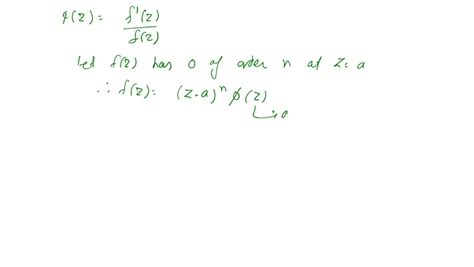 φ(z) = f'(z) / f(z)
Let f(z) has 0 of order n at z = a
∴ f(z) = (z - a)^n ϕ(z)